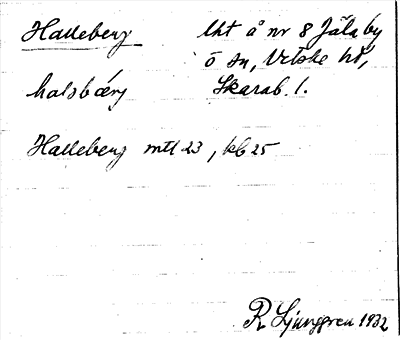 Halleberg lht å nr 8 Jäla by
ö sn, Vilske hd,
halsbærj Skarab. l.
Halleberg mtl 23, kb 25
R Ljunggren 1932